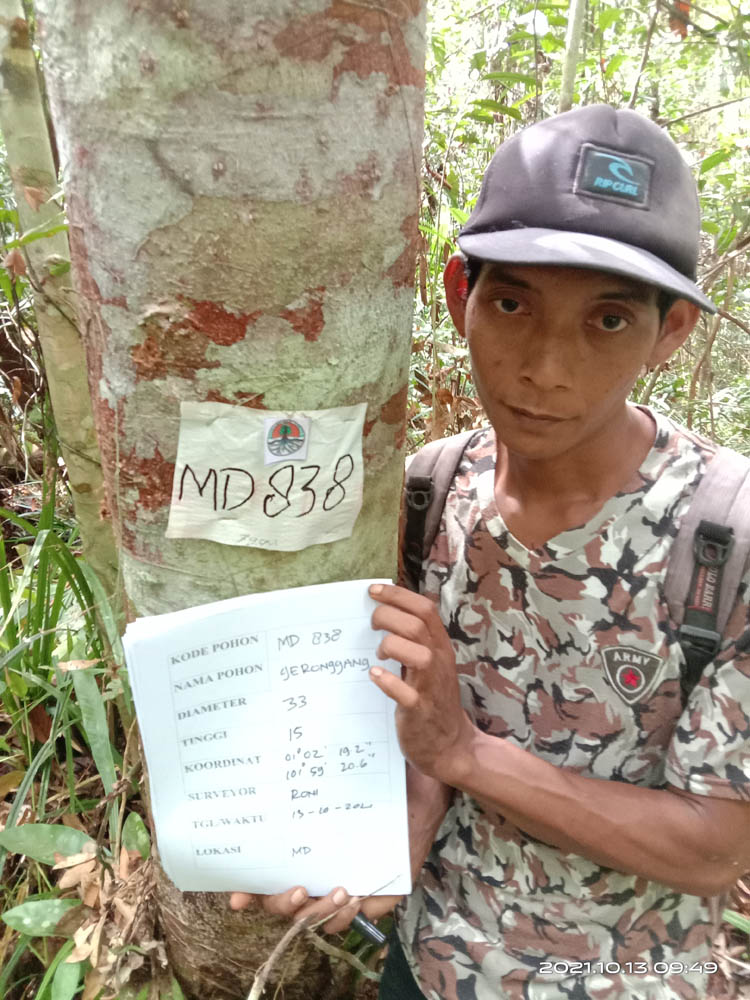 RIP CURL
MD 838
KODE POHON MD 838
NAMA POHON GERONGGANG
DIAMETER 33
TINGGI 15
KOORDINAT 01° 02' 19.2"
101° 59' 20.6"
SURVEYOR RONI
TGL/WAKTU 13-10-2021
LOKASI MD
ARMY
2021.10.13 09:49